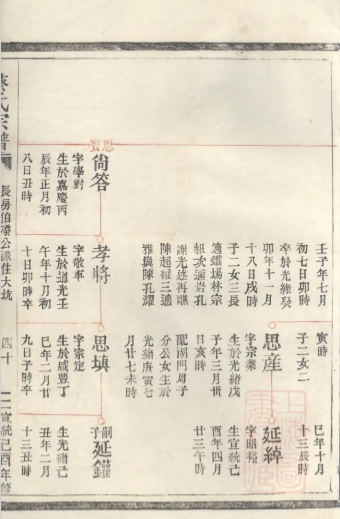 壬子年七月
初七日卯時
卒於光緒癸
卯年十一月
十八日戌時
子二女三長
適鐵場林宗
報次適岩孔
謝光述再醮
陳超種三適
雅與陳孔耀
寅時
子二女二
思產
字宗業
生於光緒戊
子年三月卅
日亥時
門周子
分公女生於
光緒庚寅七
月廿七未時
巳年十月
十三辰時
延綽
字昭裕
生宣統己
酉年四月
廿三午時
尚答
字學對
生於嘉慶丙
辰年正月初
八日丑時
孝將
字敬軍
生於道光壬
午年十月初
十日卯時辛
思填
字宗定
生於咸豐丁
巳年二月廿
九日子時辛
嗣子
延鑼
生光緒己
丑年二月
十三丑時
氏宗譜
長房伯
公派住大坑
四十
宣統己酉年修